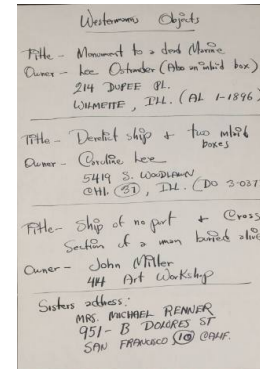 Westermann Objects
Title - Monument to a dead Marine
Owner - Lee Ostrander (Also an inlaid box)
214 DUPEE PL.
WILMETTE, ILL. (AL 1-1896)
Title - Derelict ship + two inlaid
boxes
Owner - Caroline Lee
5419 S. WOODLAWN
CHI. (37), ILL. (DO 3-037
Title - Ship of no port + Cross
Section of a man buried alive
Owner - John Miller
414 Art Workshop
Sisters address:
MRS. MICHAEL RENNER
951-B DOLORES ST
SAN FRANCISCO (10) CALIF.